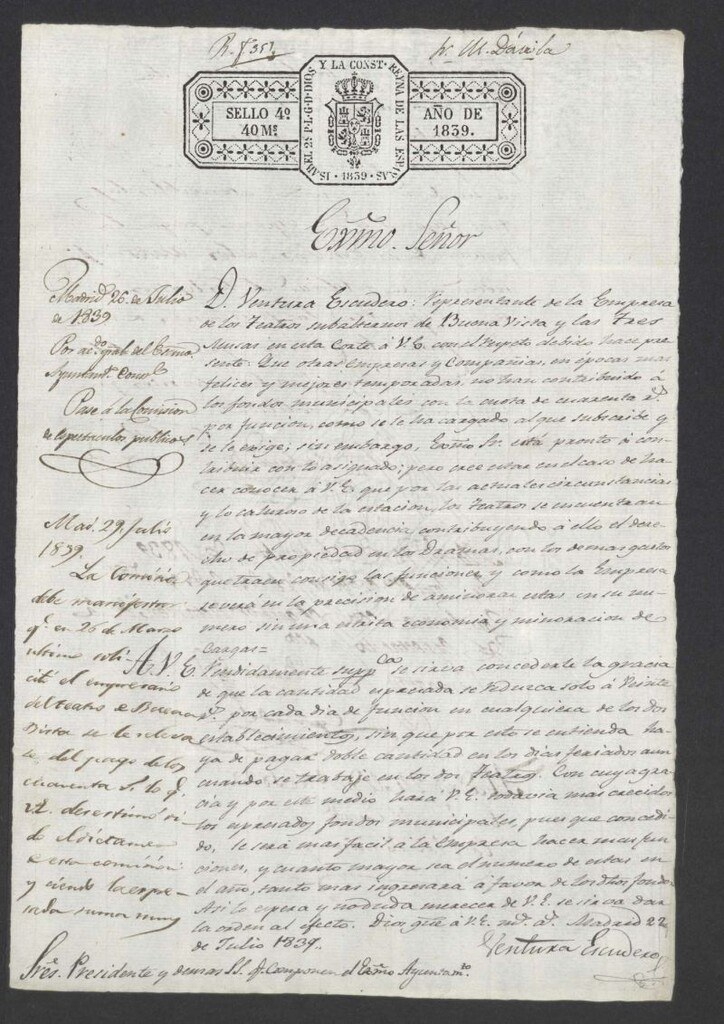 SELLO 4º
40 Mˢ
ISABEL 2ª P.L.G.D.DIOS Y LA CONST. REYNA DE LAS ESPAÑAS
1839
AÑO DE
1839.
Exmo. Señor
Madrid 26 de Julio
de 1839
Por ac.do gral del Exmo.
Ayuntam.to Const.l
Pase á la Comision
de espectaculos publicos
D. Ventura Escudero: representante de la Empresa
de los Teatros subalternos de Buena Vista y las Tres
Musas en esta Corte á V.E. con el respeto debido hace pre
sente: Que otras Empresas y Compañias, en epocas mas
felices y mejores temporadas, no han contribuido á
los fondos municipales con la cuota de cuarenta r.s
por funcion, como se le ha cargado al que subscribe y
se le exige; sin embargo, Exmo Sr. está pronto á con
tribuir con lo asignado; pero cree estar en el caso de ha
cer conocer á V.E. que por las actuales circunstancias
y lo caluroso de la estacion, los Teatros se encuentran
en la mayor decadencia contribuyendo á ello el dere
cho de propiedad en los Dramas, con los demas gastos
que traen consigo las funciones y como la Empresa
se verá en la precision de aminorar estas en su nu
mero sin una estrita economia y minoracion de
cargas=
A V.E. Rendidamente supp.ca se sirva concederle la gracia
de que la cantidad espresada se reduzca solo á Veinte
r.s por cada dia de funcion en cualquiera de los dos
establecimientos, sin que por esto se entienda ha
ya de pagar doble cantidad en los dias feriados aun
cuando se trabaje en los dos Teatros. Con cuya gra
cia y por este medio hará V.E. todavia mas crecidos
los espresados fondos municipales, pues que concedi
do, le será mas facil á la Empresa hacer mas fun
ciones, y cuanto mayor sea el numero de estas en
el año, tanto mas ingresará á favor de los dhos fondos
Asi lo espera y no duda merecer de V.E. se sirva dar
la orden al efecto. Dios gue á V.E. m.s a.s Madrid 22
de Julio 1839.
Ventura Escudero
Mad. 29. Julio
1839.
La Comision
debe manifestar
q.e en 26 de Marzo
ultimo soli-
citó el empresario
del teatro de Buena
Vista se le releva
se del pago de los
cuarenta
22. desestimó
el dictamen
de esta comision
y siendo la espre
sada suma muy
Sres. Presidente y demas SS. q. Componen el Exmo Ayuntam.to